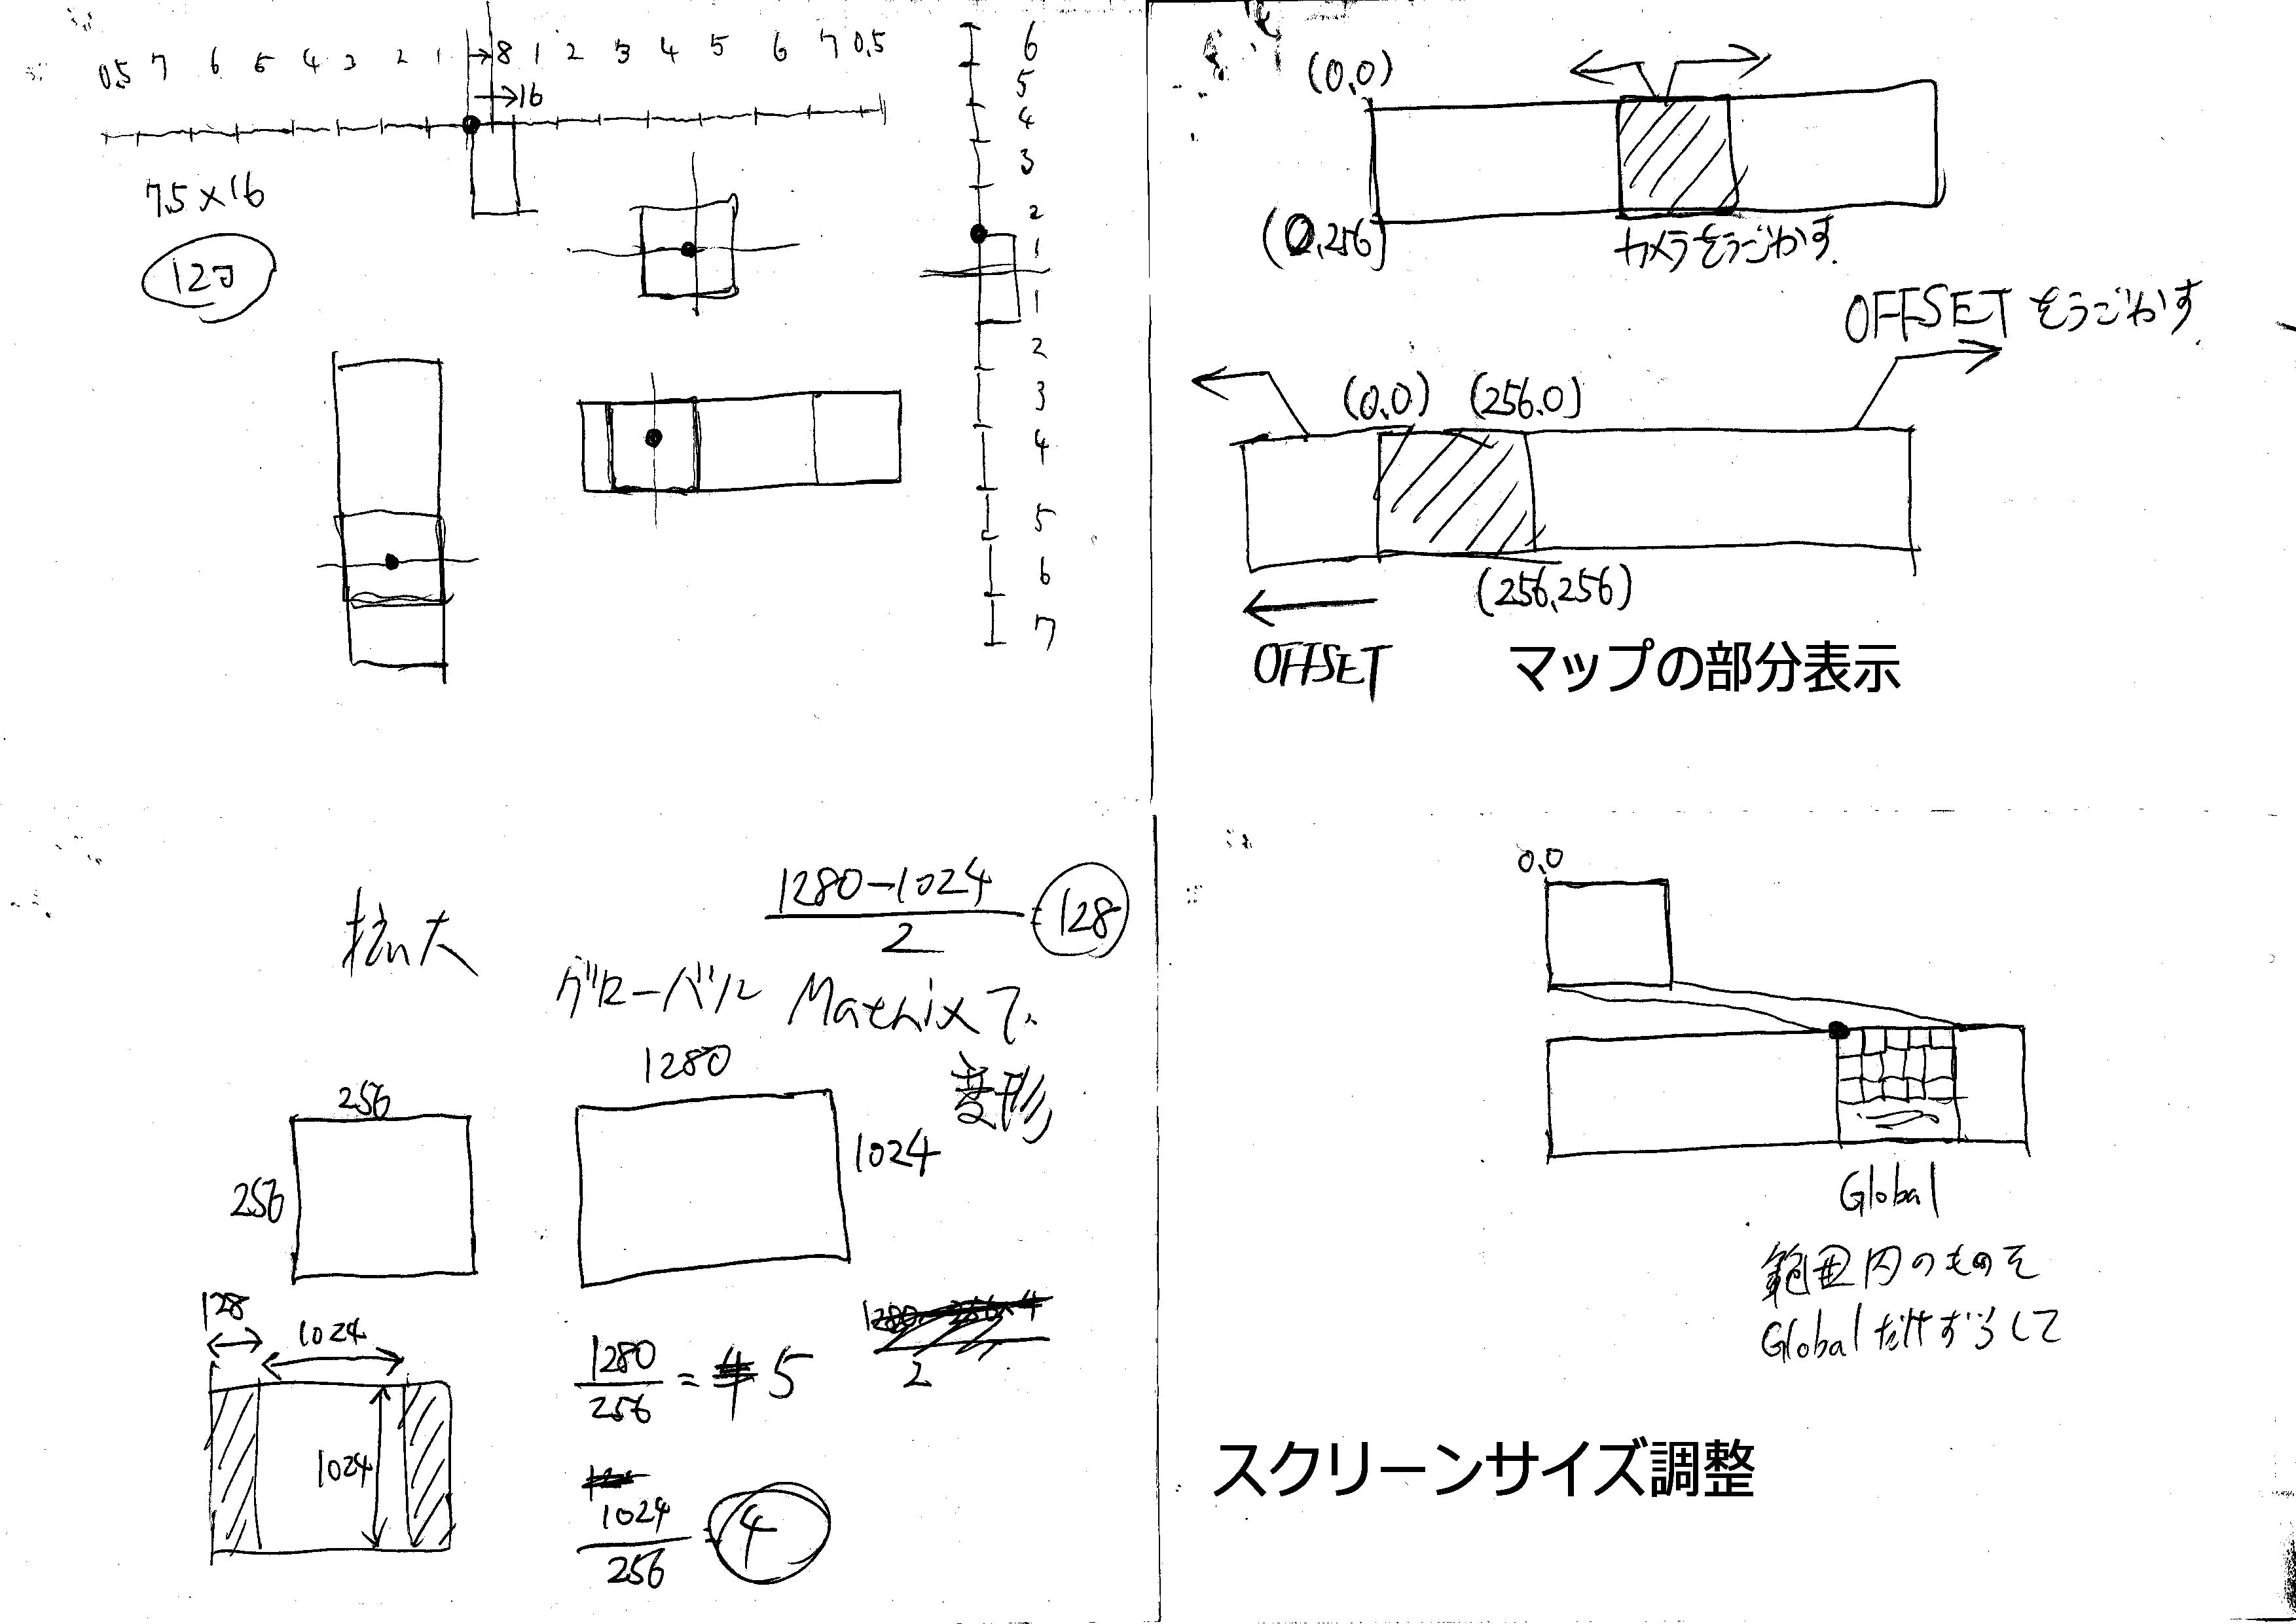 0.5 7 6 5 4 3 2 1 →8 1 2 3 4 5 6 7 0.5
→16
7.5×16
120
6
5
4
3
2
1
1
2
3
4
5
6
7
(0,0)
(0,256)
カメラをうごかす
OFFSETをうごかす
(0,0) (256,0)
(256,256)
OFFSET
マップの部分表示
拡大
1280-1024
2
=128
グローバル Matrixで
変形
256
256
1280
1024
128
1024
1024
1280
256
= 5
2
1024
256
= 4
0,0
Global
範囲内のものを
Globalだけずらして
スクリーンサイズ調整